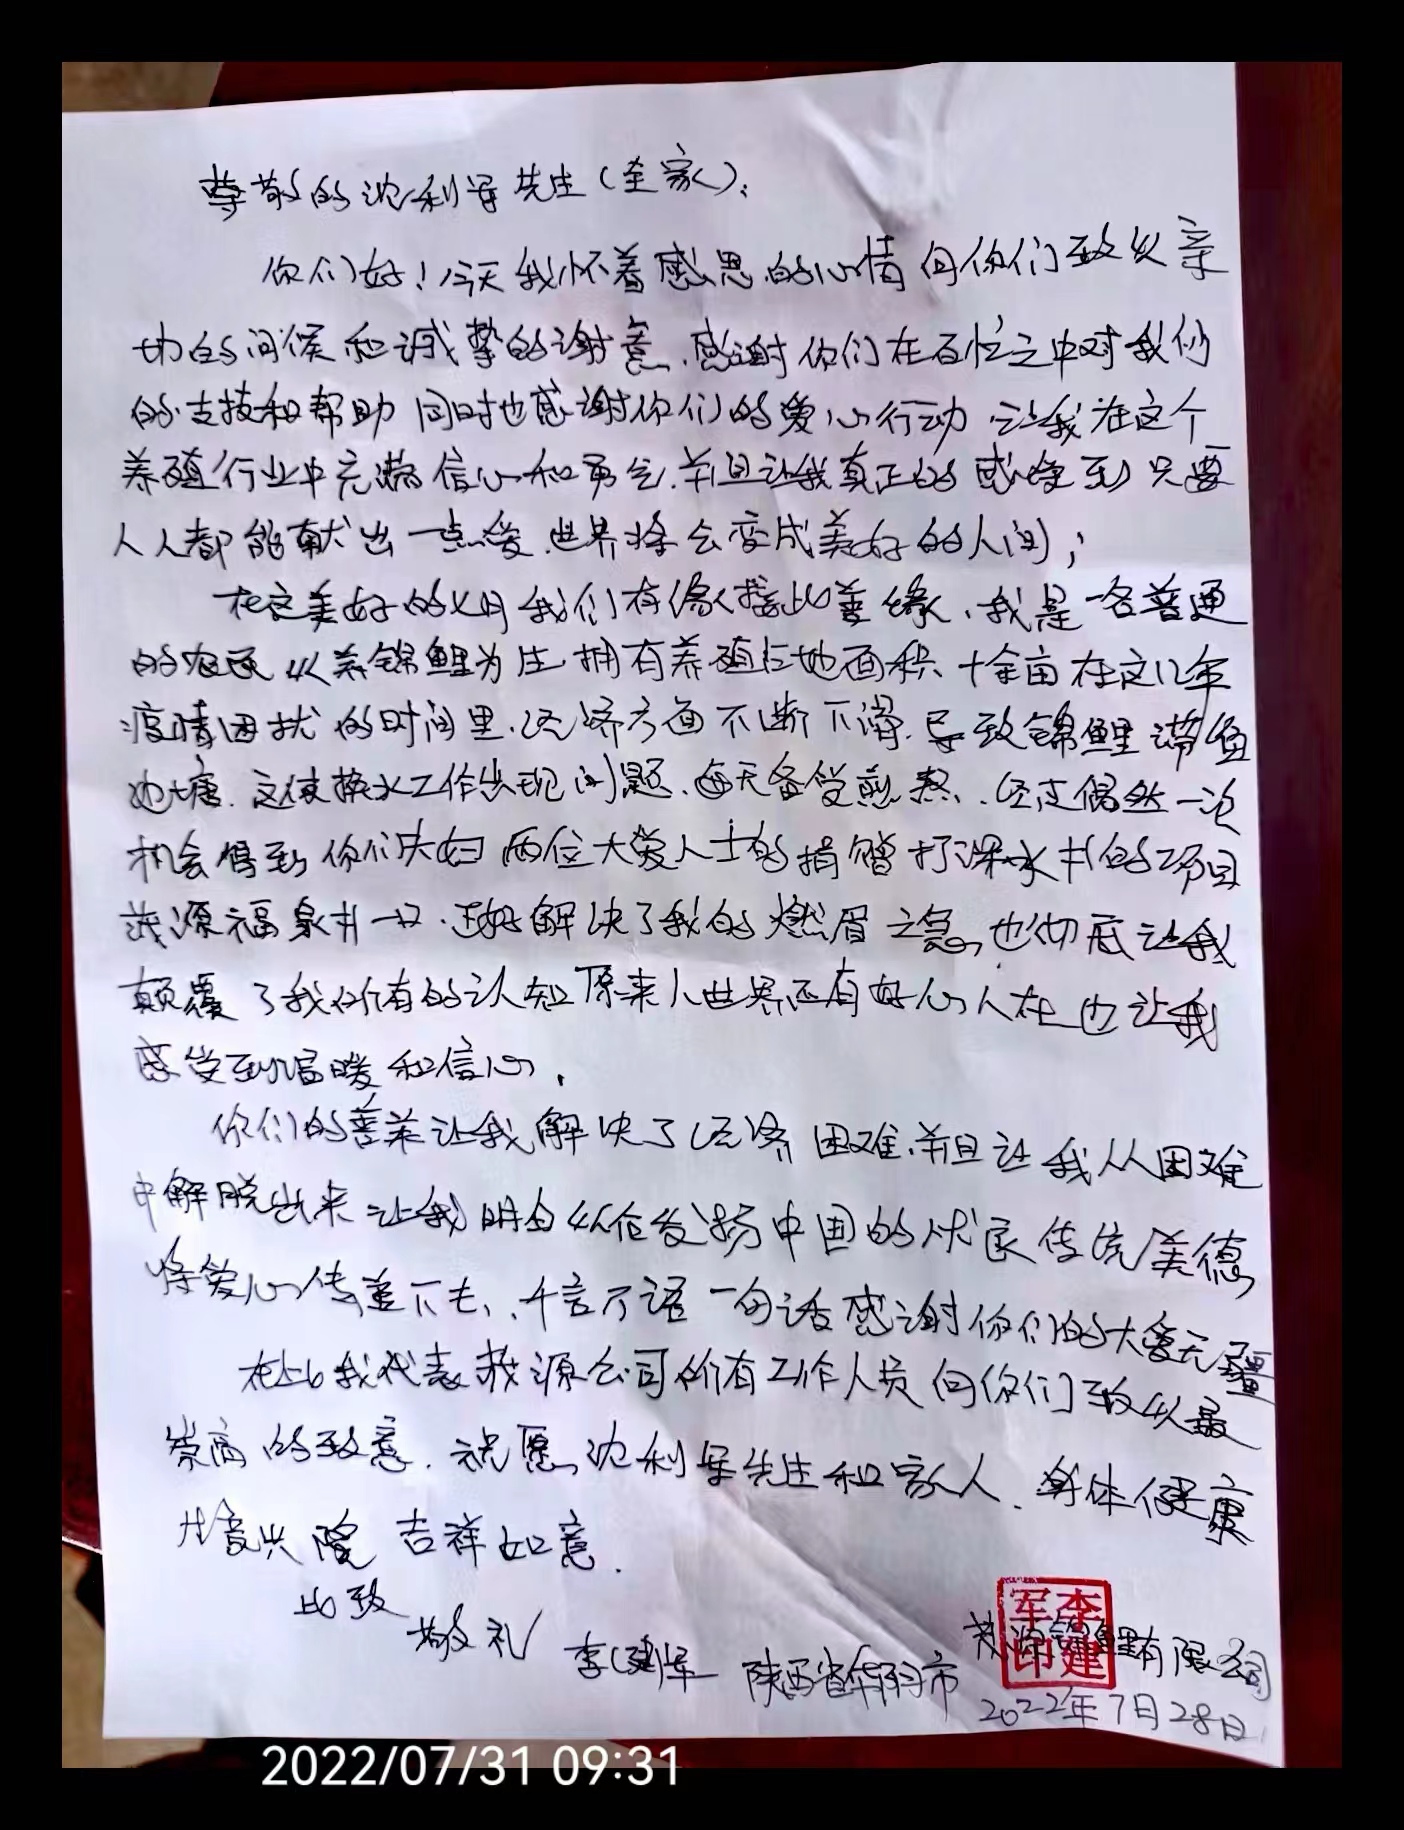 尊敬的沈利军先生(全家):
你们好!今天我怀着感恩的心情向你们致以亲
切的问候和诚挚的谢意.感谢你们在百忙之中对我们
的支持和帮助 同时也感谢你们的爱心行动 让我在这个
养殖行业中充满信心和勇气.并且让我真正的感悟到只要
人人都能献出一点爱.世界将会变成美好的人间;
在这美好的七月我们有缘接此善缘.我是一名普通
的农民 以养锦鲤为生 拥有养殖占地面积 十余亩 在这几年
疫情困扰的时间里.经济方面不断下滑.导致锦鲤满鱼
池塘.这使换水工作出现问题.每天备受煎熬.经过偶然一次
机会得到你们夫妇两位大爱人士的捐赠打深水井的项目
源福泉井一口.正好解决了我的燃眉之急 也彻底让我
颠覆了我所有的认知 原来人世界还有好心人在 也让我
感受到温暖和信心.
你们的善举让我解决了经济困难.并且让我从困难
中解脱出来 让我明白 发扬中国的优良传统美德
将爱心传递下去.千言万语一句话感谢你们的大爱无疆
在此我代表 源公司所有工作人员向你们致以最
崇高的致意.祝愿沈利军先生和家人.身体健康
吉祥如意.
此致
敬礼
李建军 陕西省 市
源锦鲤有限公司
李建军印
2022年7月28日
2022/07/31 09:31